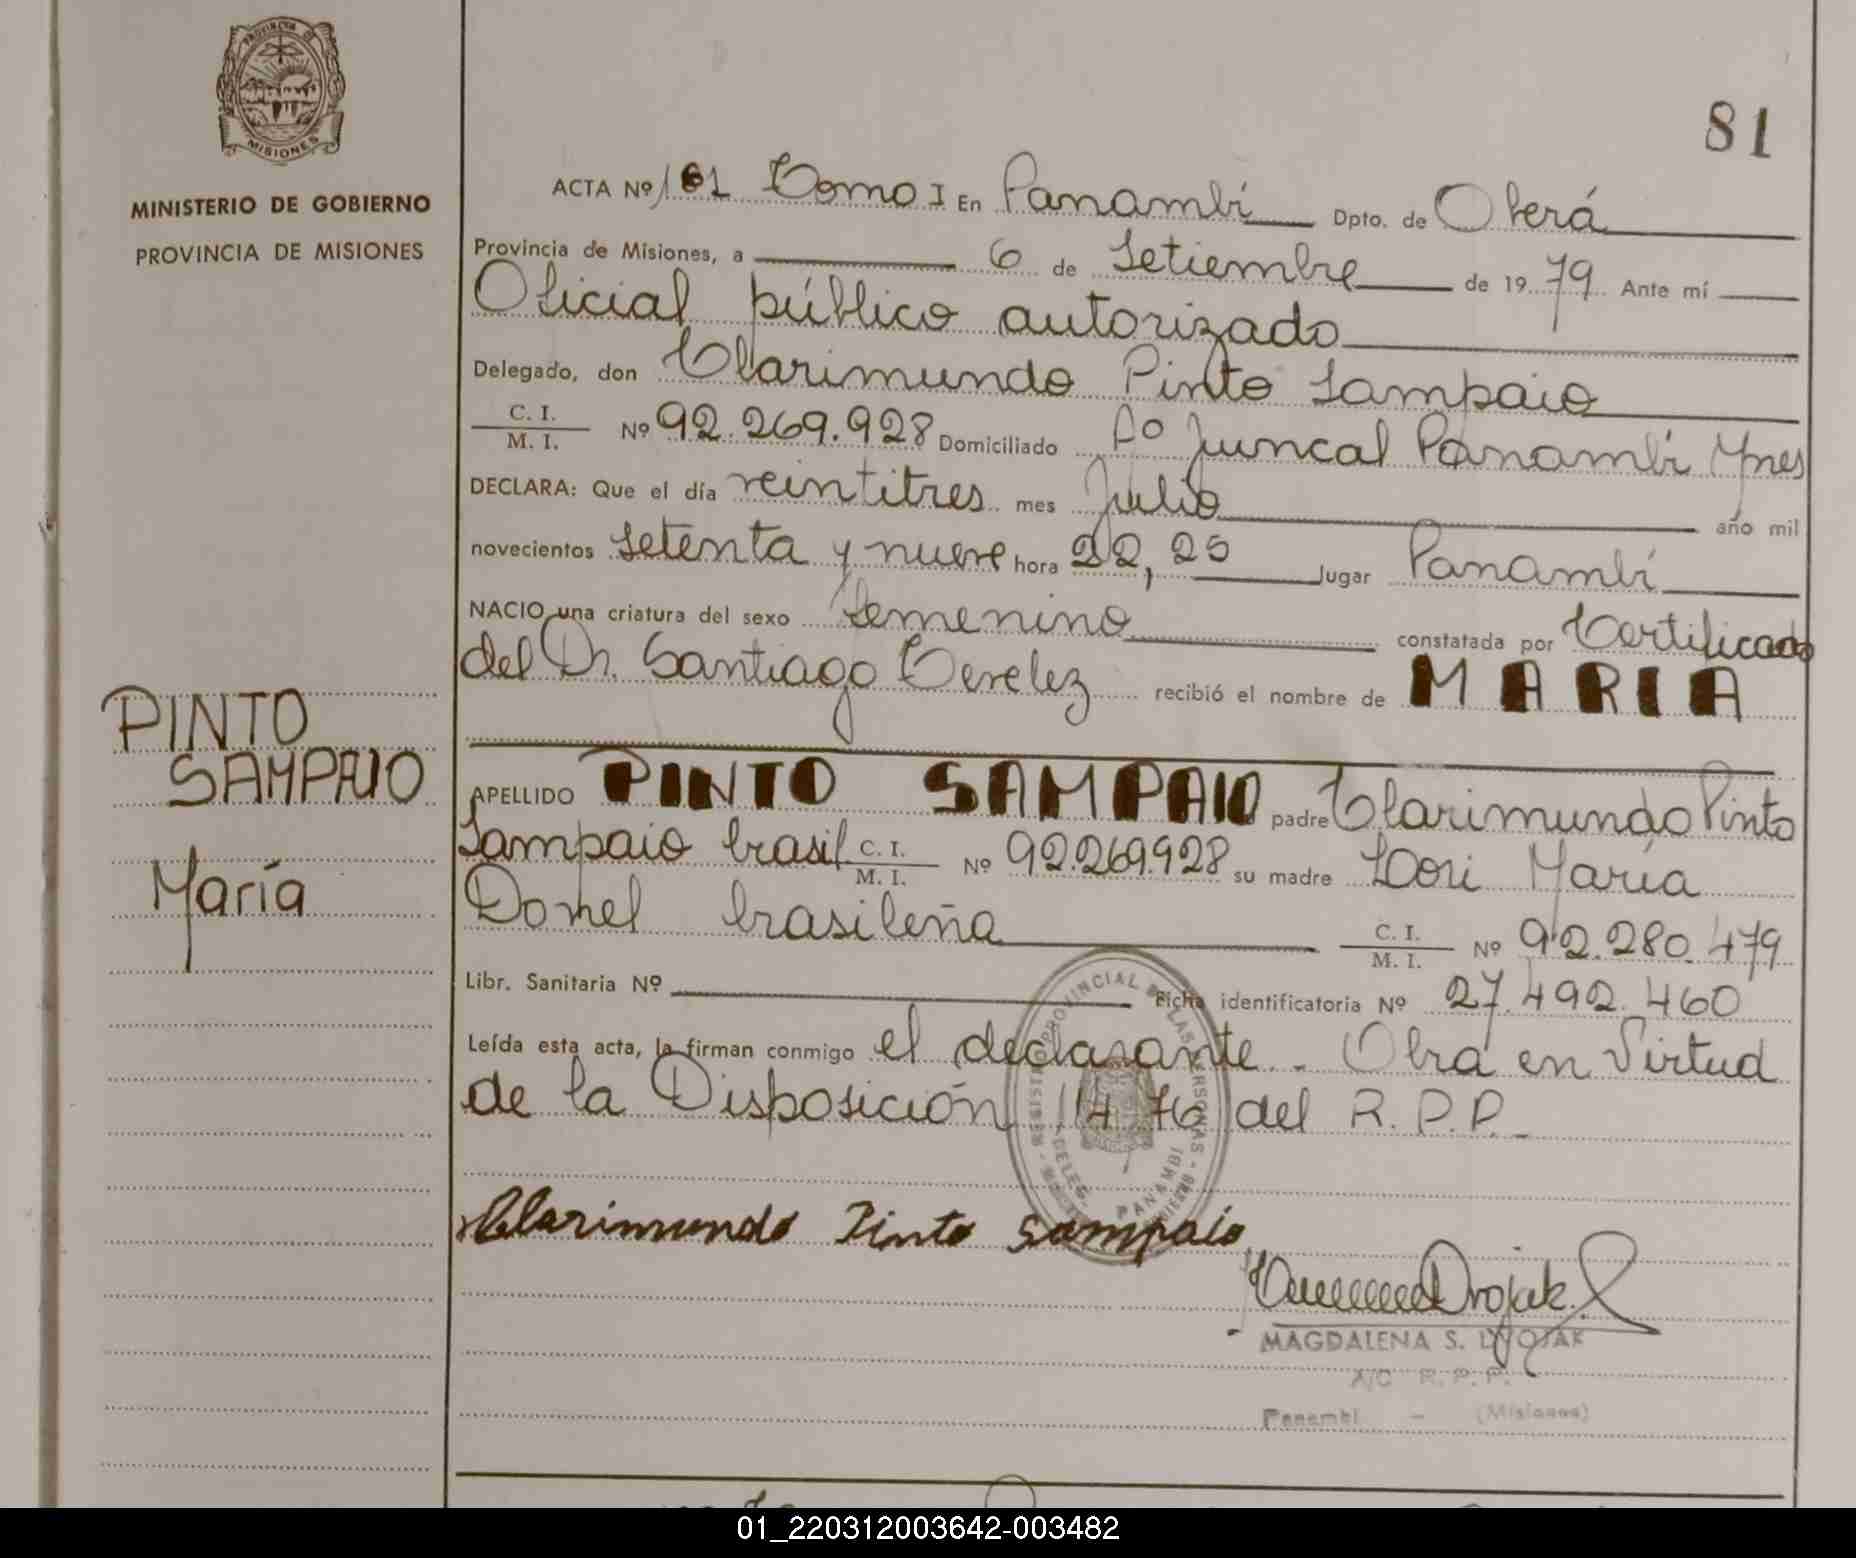 PROVINCIA DE
MISIONES
MINISTERIO DE GOBIERNO
PROVINCIA DE MISIONES
81
ACTA Nº 161 Tomo I En Panambí Dpto. de Oberá
Provincia de Misiones, a 6 de Setiembre de 1979 Ante mí
Oficial público autorizado
Delegado, don Clarimundo Pinto Sampaio
C. I.
M. I. Nº 92.269.928 Domiciliado Aº Juncal Panambí Mnes
DECLARA: Que el día veintitres mes Julio año mil
novecientos setenta y nueve hora 22,25 lugar Panambí
NACIO una criatura del sexo femenino constatada por Certificado
del Dr. Santiago recibió el nombre de MARIA
APELLIDO PINTO SAMPAIO padre Clarimundo Pinto
Sampaio brasil C. I.
M. I. Nº 92.269.928 su madre Lori María
Dornel brasileña C. I.
M. I. Nº 92.280.479
Libr. Sanitaria Nº Ficha identificatoria Nº 27.492.460
Leída esta acta, la firman conmigo el declarante - Obra en Virtud
de la Disposición 14 76 del R.P.P.-
PINTO
SAMPAIO
María
REGISTRO PROVINCIAL DE LAS PERSONAS
DELEG. PANAMBI
Clarimundo Pinto Sampaio
MAGDALENA S. DROJAK
A/C R.P.P.
Panambí - (Misiones)
01_220312003642-003482